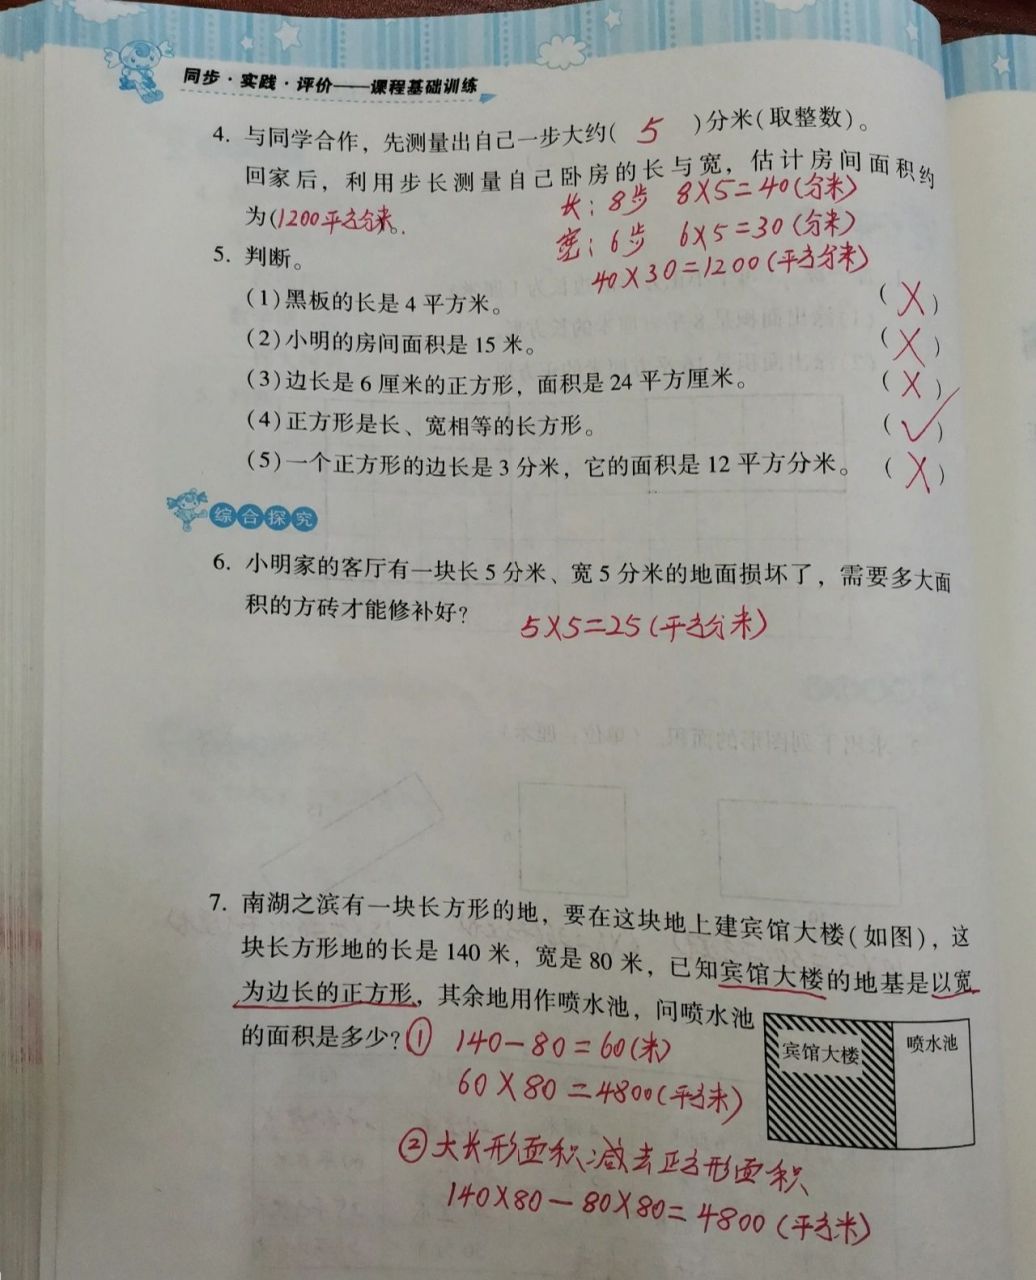 同步·实践·评价——课程基础训练
4. 与同学合作，先测量出自己一步大约( 5 )分米(取整数)。
回家后，利用步长测量自己卧房的长与宽，估计房间面积约
为(1200平方分米。
长：8步 8×5=40(分米)
宽：6步 6×5=30(分米)
40×30=1200(平方分米)
5. 判断。
(1)黑板的长是 4 平方米。 (×)
(2)小明的房间面积是 15 米。 (×)
(3)边长是 6 厘米的正方形，面积是 24 平方厘米。 (×)
(4)正方形是长、宽相等的长方形。 (✓)
(5)一个正方形的边长是 3 分米，它的面积是 12 平方分米。 (×)
综合探究
6. 小明家的客厅有一块长 5 分米、宽 5 分米的地面损坏了，需要多大面
积的方砖才能修补好?
5×5=25(平方分米)
7. 南湖之滨有一块长方形的地，要在这块地上建宾馆大楼(如图)，这
块长方形地的长是 140 米，宽是 80 米，已知宾馆大楼的地基是以宽
为边长的正方形，其余地用作喷水池，问喷水池
的面积是多少?
① 140-80=60(米)
60×80=4800(平方米)
宾馆大楼
喷水池
②大长形面积减去正方形面积
140×80-80×80=4800(平方米)